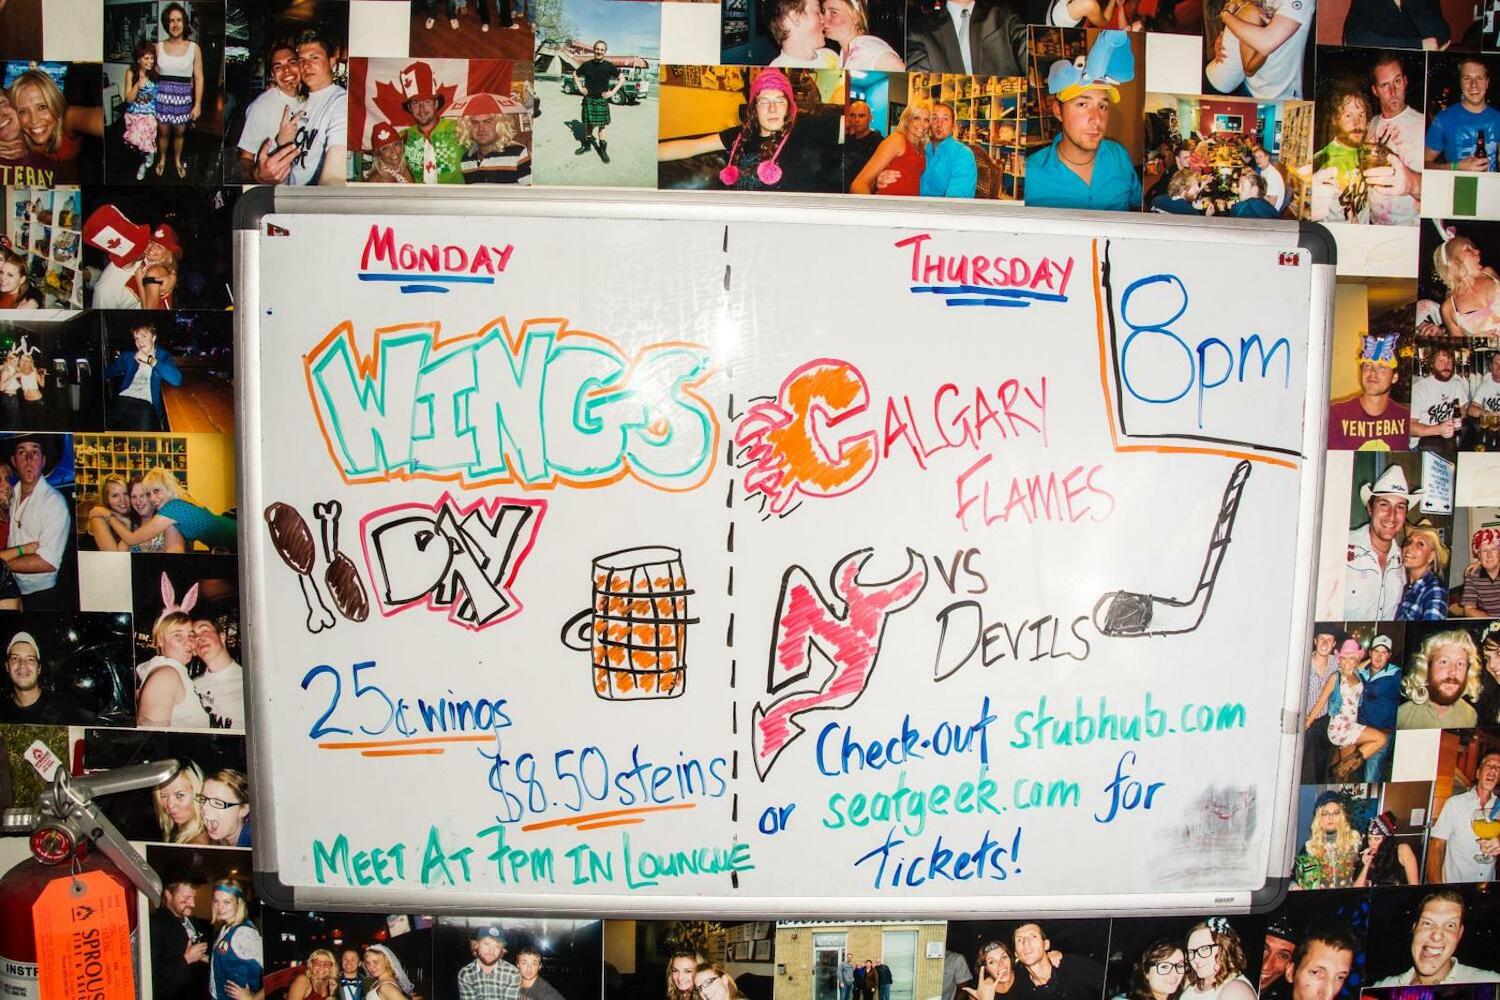 MONDAY
WINGS
DAY
25¢ wings
$8.50 steins
MEET AT 7pm IN LOUNGUE
THURSDAY
8pm
CALGARY
FLAMES
VS
DEVILS
Check-out stubhub.com
or seatgeek.com for
tickets!
VENTEBAY
SPROUS
FIRE & SAFE
INST